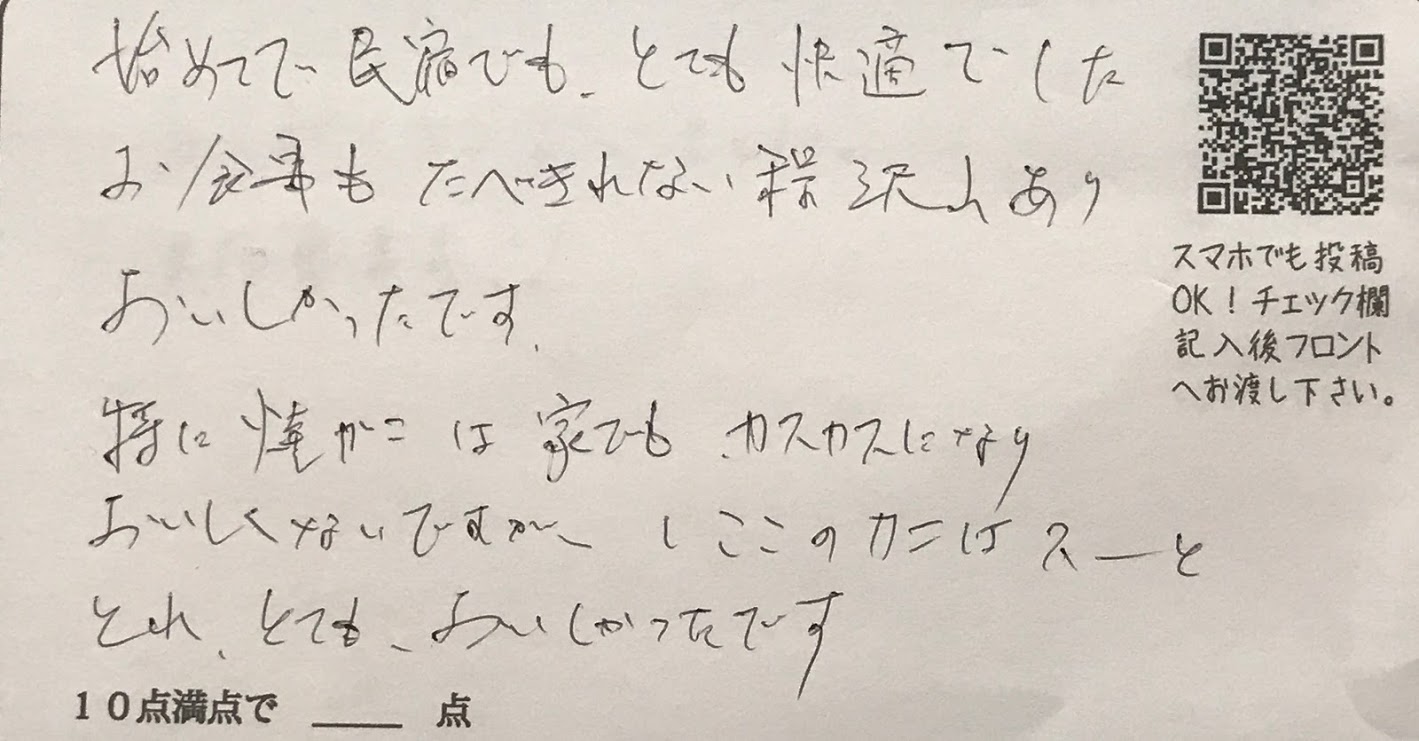 始めてで民宿でも、とても快適でした
お食事もたべきれない程沢山あり
おいしかったです、
特に焼がには家でも、カスカスになり
おいしくないですが、ここのカニはスーと
とれ、とても、おいしかったです
10点満点で ____ 点
スマホでも投稿
OK！チェック欄
記入後フロント
へお渡し下さい。